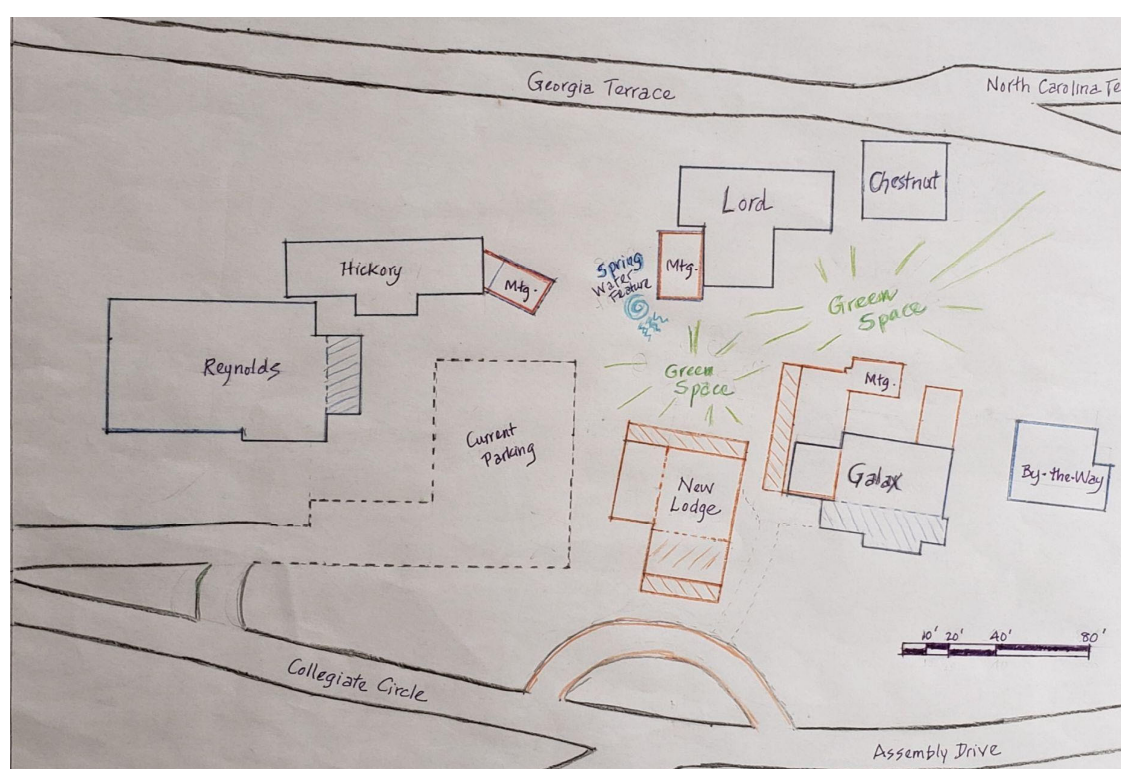 Georgia Terrace
North Carolina Te
Chestnut
Lord
Hickory
Mtg.
Spring
Water
Feature
Mtg.
Green
Space
Reynolds
Green
Space
Mtg.
Current
Parking
New
Lodge
Galax
By-the-Way
10' 20' 40' 80'
Collegiate Circle
Assembly Drive